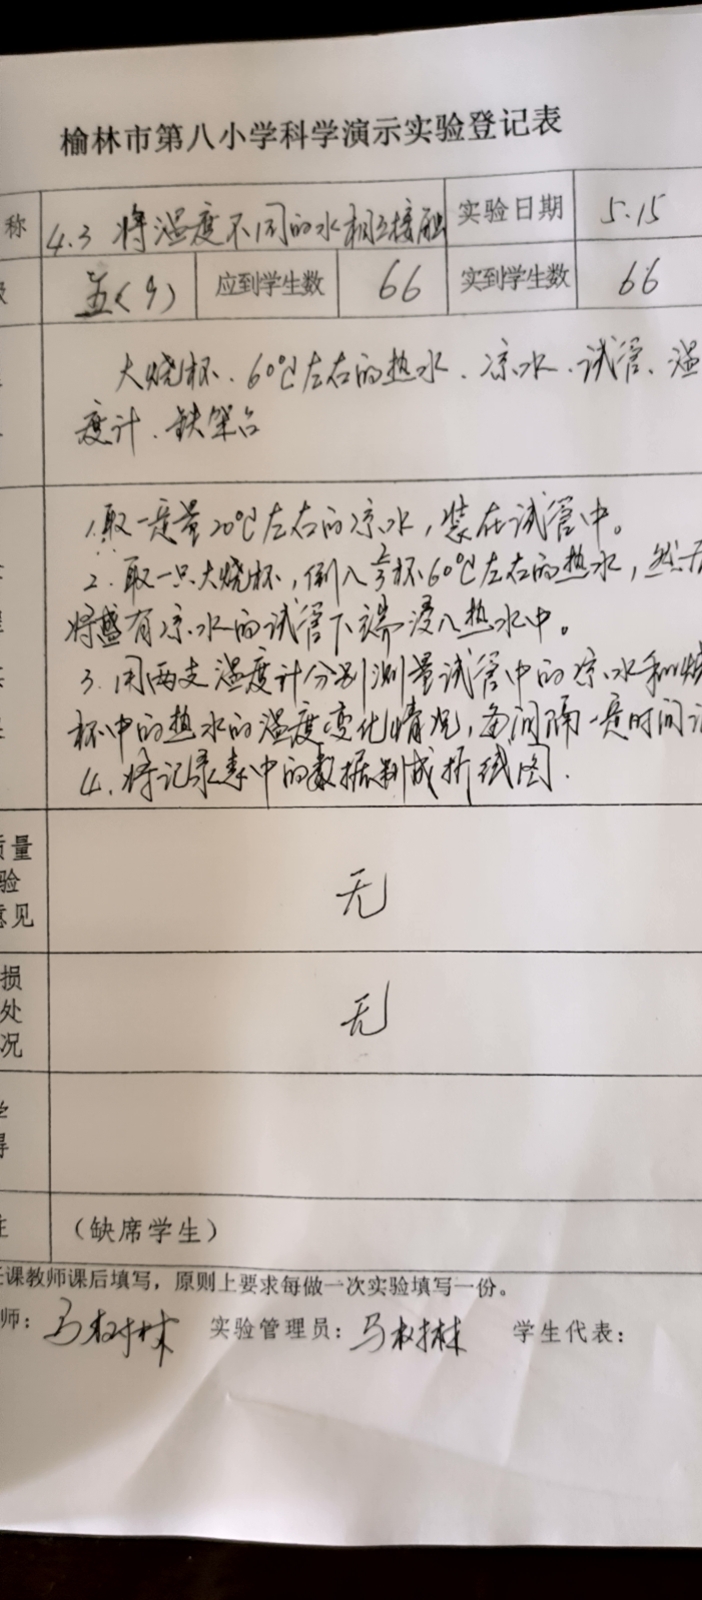 榆林市第八小学科学演示实验登记表
称 4.3 将温度不同的水相互接触 实验日期 5.15
五(9) 应到学生数 66 实到学生数 66
大烧杯、60℃左右的热水、凉水、试管、温
度计、铁架台
1.取一定量20℃左右的凉水，装在试管中。
2.取一只大烧杯，倒入2/3杯60℃左右的热水，然
将盛有凉水的试管下端浸入热水中。
3.用两支温度计分别测量试管中的凉水和烧
杯中的热水的温度变化情况，每间隔一定时间
4.将记录表中的数据制成折线图.
质量
验
意见
无
损
处
况
无
（缺席学生）
课教师课后填写，原则上要求每做一次实验填写一份。
师：马树林 实验管理员：马树林 学生代表：